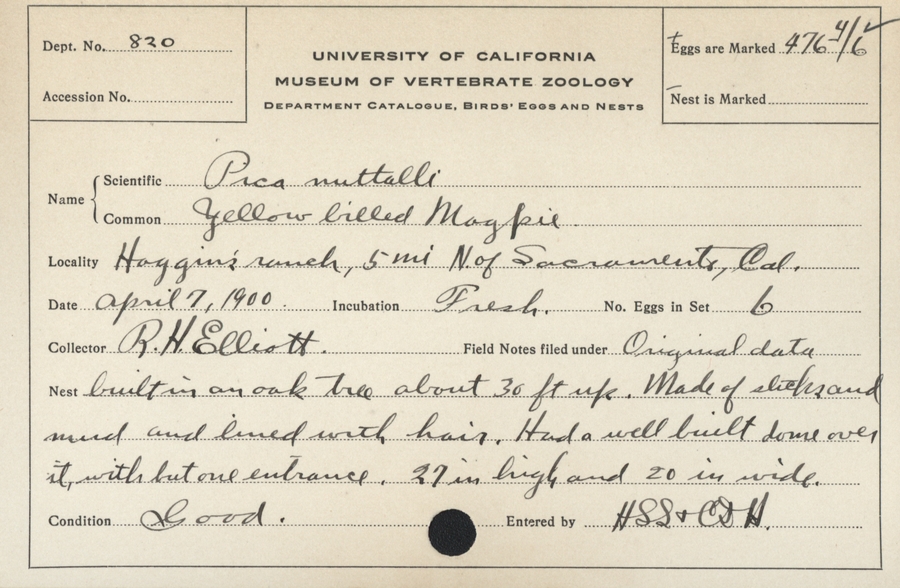 Dept. No. 820
Accession No.
UNIVERSITY OF CALIFORNIA
MUSEUM OF VERTEBRATE ZOOLOGY
DEPARTMENT CATALOGUE, BIRDS' EGGS AND NESTS
Eggs are Marked 476 4/6
Nest is Marked
Name
Scientific Pica nuttalli
Common Yellow billed Magpie
Locality Haggin's ranch, 5 mi N. of Sacramento, Cal.
Date April 7, 1900. Incubation Fresh. No. Eggs in Set 6
Collector R. H. Elliott. Field Notes filed under Original data
Nest built in an oak tree about 30 ft up. Made of sticks and
mud and lined with hair. Had a well built dome over
it, with but one entrance. 27 in high and 20 in wide.
Condition Good. Entered by HSS &